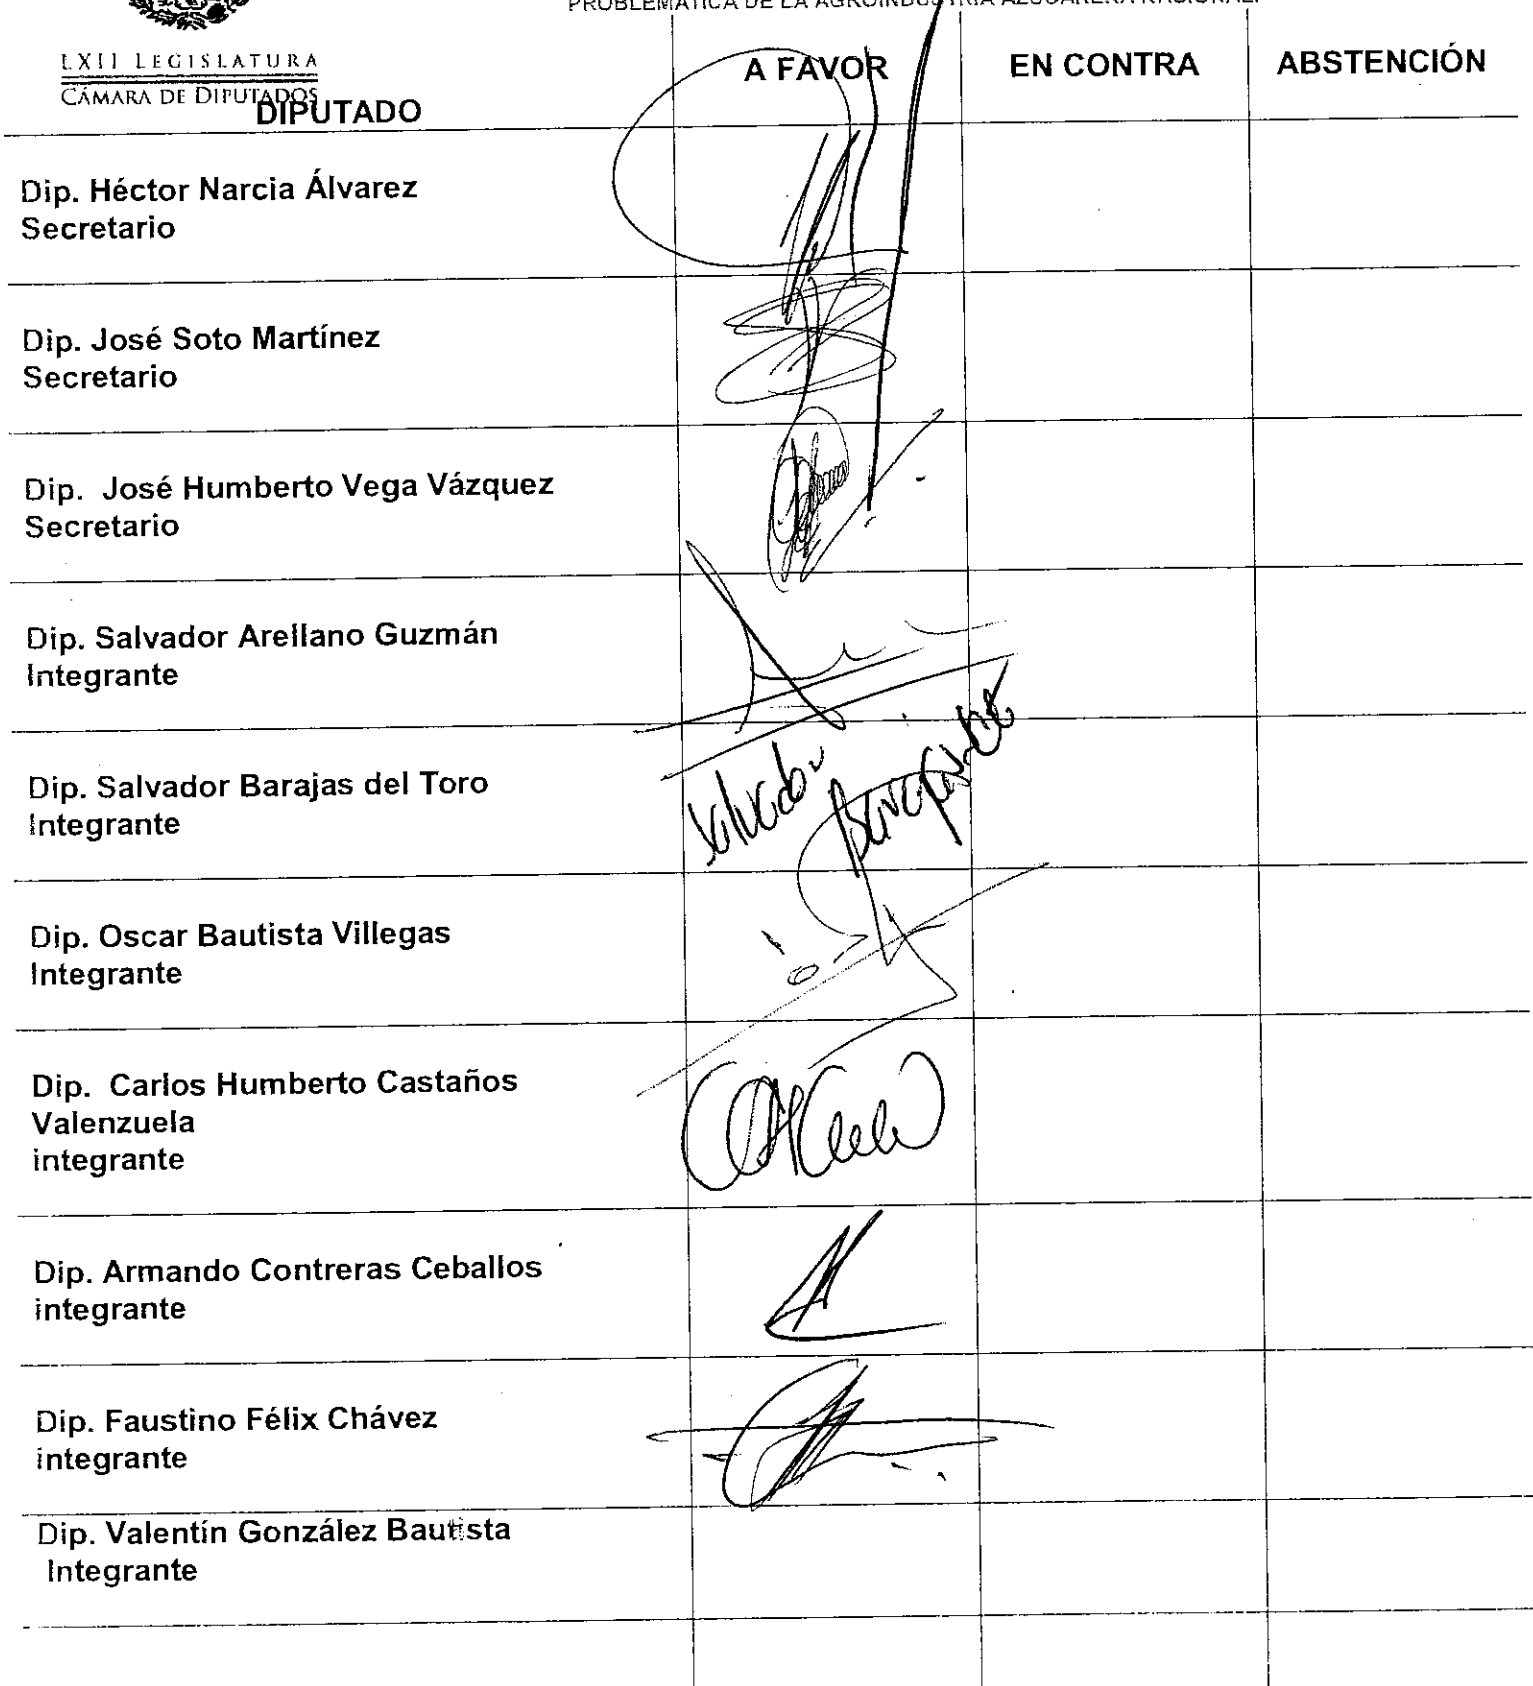 PROBLEMÁTICA DE LA AGROINDUSTRIA AZUCARERA NACIONAL.
LXII LEGISLATURA
CÁMARA DE DIPUTADOS
DIPUTADO
A FAVOR
EN CONTRA
ABSTENCIÓN
Dip. Héctor Narcia Álvarez
Secretario
Dip. José Soto Martínez
Secretario
Dip. José Humberto Vega Vázquez
Secretario
Dip. Salvador Arellano Guzmán
Integrante
Dip. Salvador Barajas del Toro
Integrante
Salvador Barajas
Dip. Oscar Bautista Villegas
Integrante
Dip. Carlos Humberto Castaños
Valenzuela
integrante
Dip. Armando Contreras Ceballos
integrante
Dip. Faustino Félix Chávez
integrante
Dip. Valentín González Bautista
Integrante